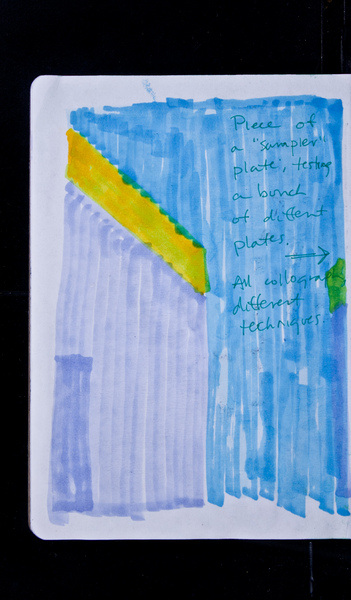 Piece of
a "sampler"
plate, testing
a bunch
of different
plates.
All collographs
different
techniques.